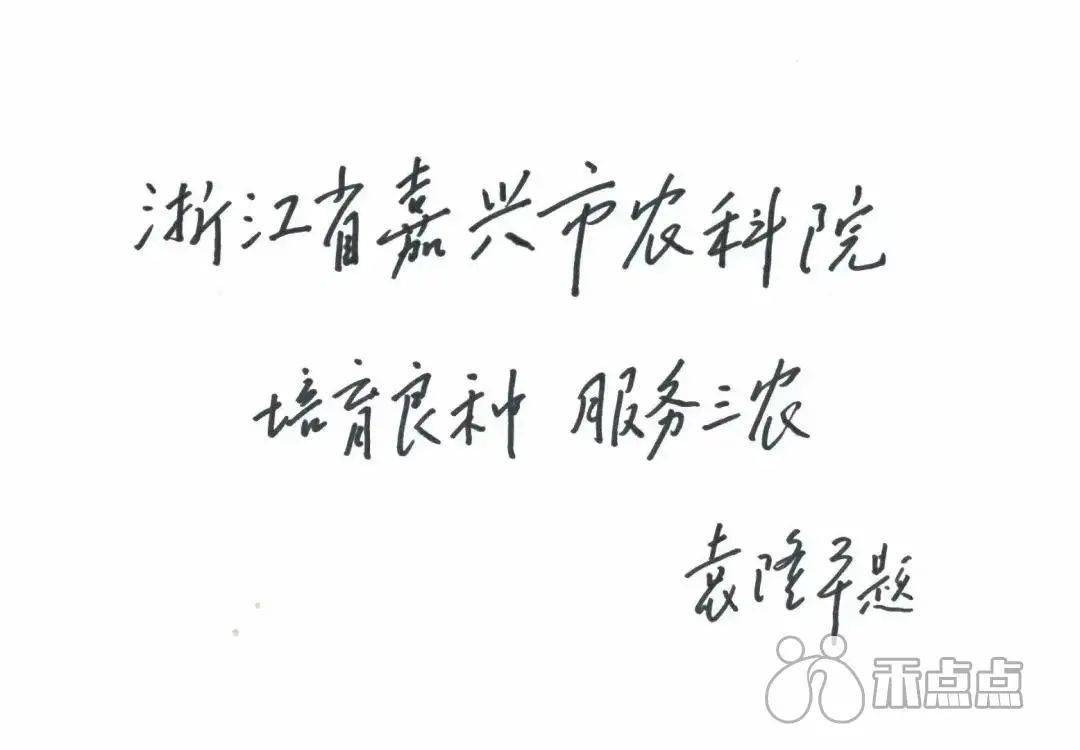 浙江省嘉兴市农科院
培育良种 服务三农
袁隆平题
禾点点